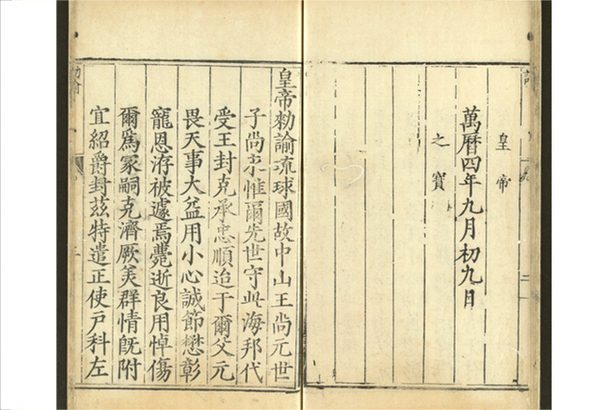 皇帝
萬曆四年九月初九日
之寶
皇帝勑諭琉球國故中山王尚元世
子尚永惟爾先世守此海邦代
受王封克承忠順迨于爾父元
畏天事大益用小心誠節懋彰
寵恩洊被遽焉薨逝良用悼傷
爾爲冢嗣克濟厥美群情既附
宜紹爵封茲特遣正使戶科左